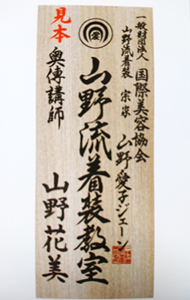 一般財団法人 国際美容協会
山野流着装 宗家 山野愛子ジェーン
山野流着装教室
奥傳講師 山野花美
見本